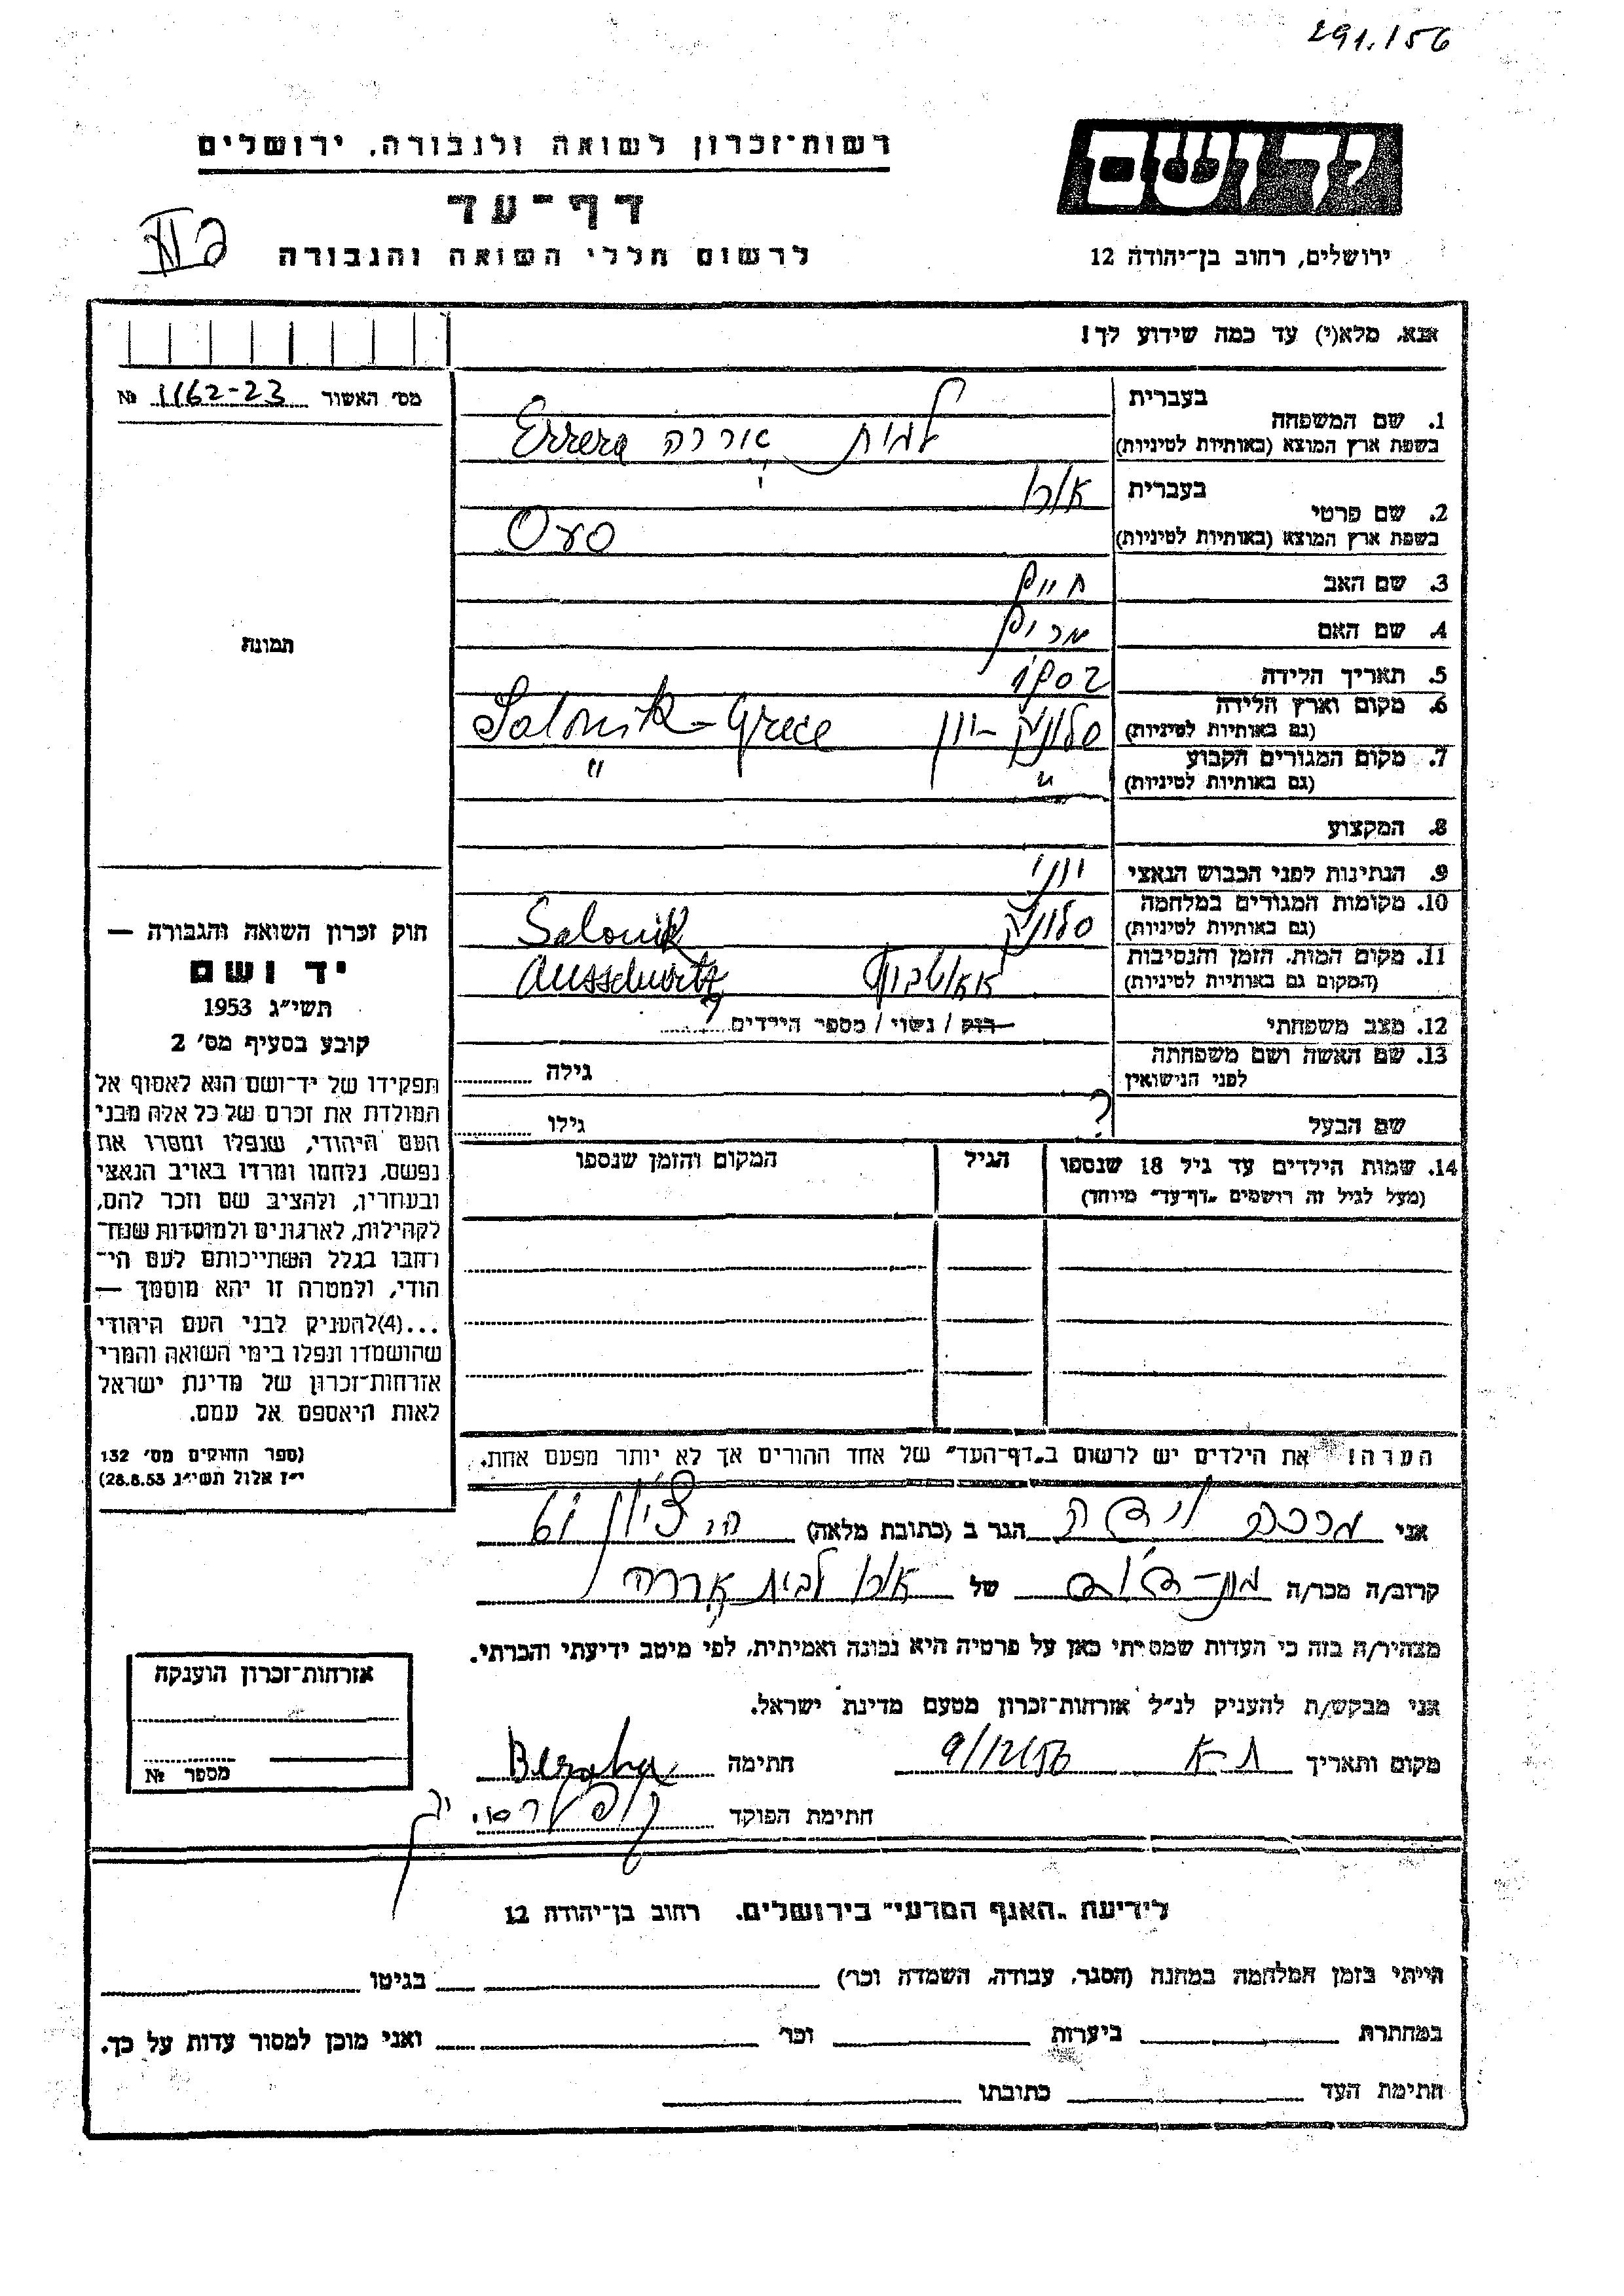 291.156
רשות־זכרון לשואה ולגבורה, ירושלים
יד ושם
דף־עד
לרשום חללי השואה והגבורה
ירושלים, רחוב בן־יהודה 12
אנא, מלא(י) עד כמה שידוע לך!
מס׳ האשור № 1162-23
1. שם המשפחה
בעברית
בשפת ארץ המוצא (באותיות לטיניות) לבית אררה Errera
2. שם פרטי
בעברית אורו
בשפת ארץ המוצא (באותיות לטיניות) Oro
3. שם האב חיים
4. שם האם מרים
5. תאריך הלידה
6. מקום וארץ הלידה סלוניק – יון Salonik – Grece
(גם באותיות לטיניות)
7. מקום המגורים הקבוע " "
(גם באותיות לטיניות)
8. המקצוע
9. הנתינות לפני הכבוש הנאצי יוני
10. מקומות המגורים במלחמה סלוניק Salonik
(גם באותיות לטיניות)
11. מקום המות, הזמן והנסיבות Ausschwitz
(המקום גם באותיות לטיניות)
12. מצב משפחתי רוק / נשוי / מספר הילדים ?
13. שם האשה ושם משפחתה לפני הנישואין גילה
שם הבעל ? גילו
14. שמות הילדים עד גיל 18 שנספו הגיל המקום והזמן שנספו
(מעל לגיל זה רושמים „דף־עד״ מיוחד)
הערה! את הילדים יש לרשום ב„דף־העד״ של אחד ההורים אך לא יותר מפעם אחת.
תמונה
חוק זכרון השואה והגבורה —
יד ושם
תשי״ג 1953
קובע בסעיף מס׳ 2
תפקידו של יד־ושם הוא לאסוף אל
המולדת את זכרם של כל אלה מבני
העם היהודי, שנפלו ומסרו את
נפשם, נלחמו ומרדו באויב הנאצי
ובעוזריו, ולהציב שם וזכר להם,
לקהילות, לארגונים ולמוסדות שנח־
רבו בגלל השתייכותם לעם הי־
הודי, ולמטרה זו יהא מוסמך —
...(4)להעניק לבני העם היהודי
שהושמדו ונפלו בימי השואה והמרי
אזרחות־זכרון של מדינת ישראל
לאות היאספם אל עמם.
(ספר החוקים מס׳ 132
י״ז אלול תשי״ג 28.8.53)
אני הגר ב (כתובת מלאה)
קרוב/ה מכר/ה של אורו לבית אררה
מצהיר/ה בזה כי העדות שמסרתי כאן על פרטיה היא נכונה ואמיתית, לפי מיטב ידיעתי והכרתי.
אני מבקש/ת להעניק לנ״ל אזרחות־זכרון מטעם מדינת ישראל.
מקום ותאריך ת-א 9/12/56 חתימה Beraha
חתימת הפוקד
אזרחות־זכרון הוענקה
מספר №
לידיעת „האגף המדעי״ בירושלים. רחוב בן־יהודה 12
הייתי בזמן המלחמה במחנה (הסגר, עבודה, השמדה וכו׳) בגיטו
במחתרת ביערות וכו׳ ואני מוכן למסור עדות על כך.
חתימת העד כתובתו